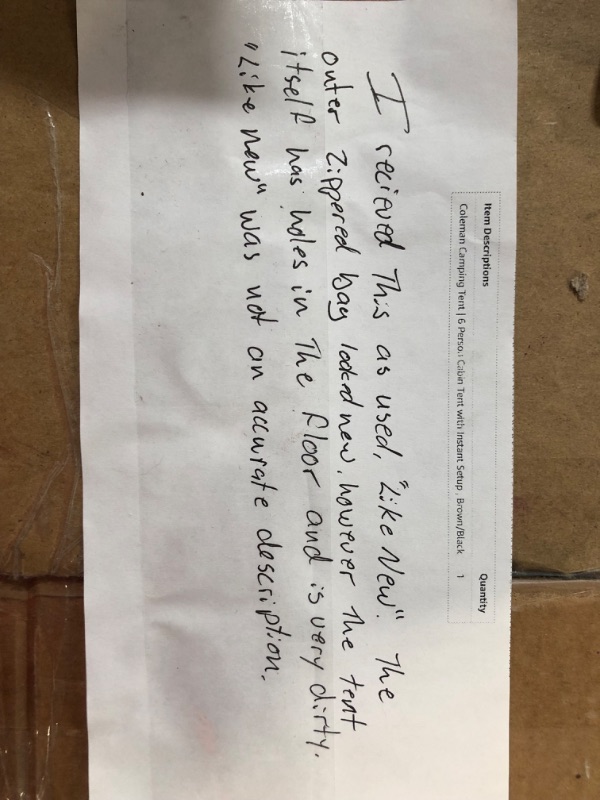 Item Descriptions Quantity
Coleman Camping Tent | 6 Person Cabin Tent with Instant Setup , Brown/Black 1
I recieved This as used, "Like New". The
outer zippered bag looked new, however the tent
itself has holes in The floor and is very dirty.
"Like new" was not an accurate description.